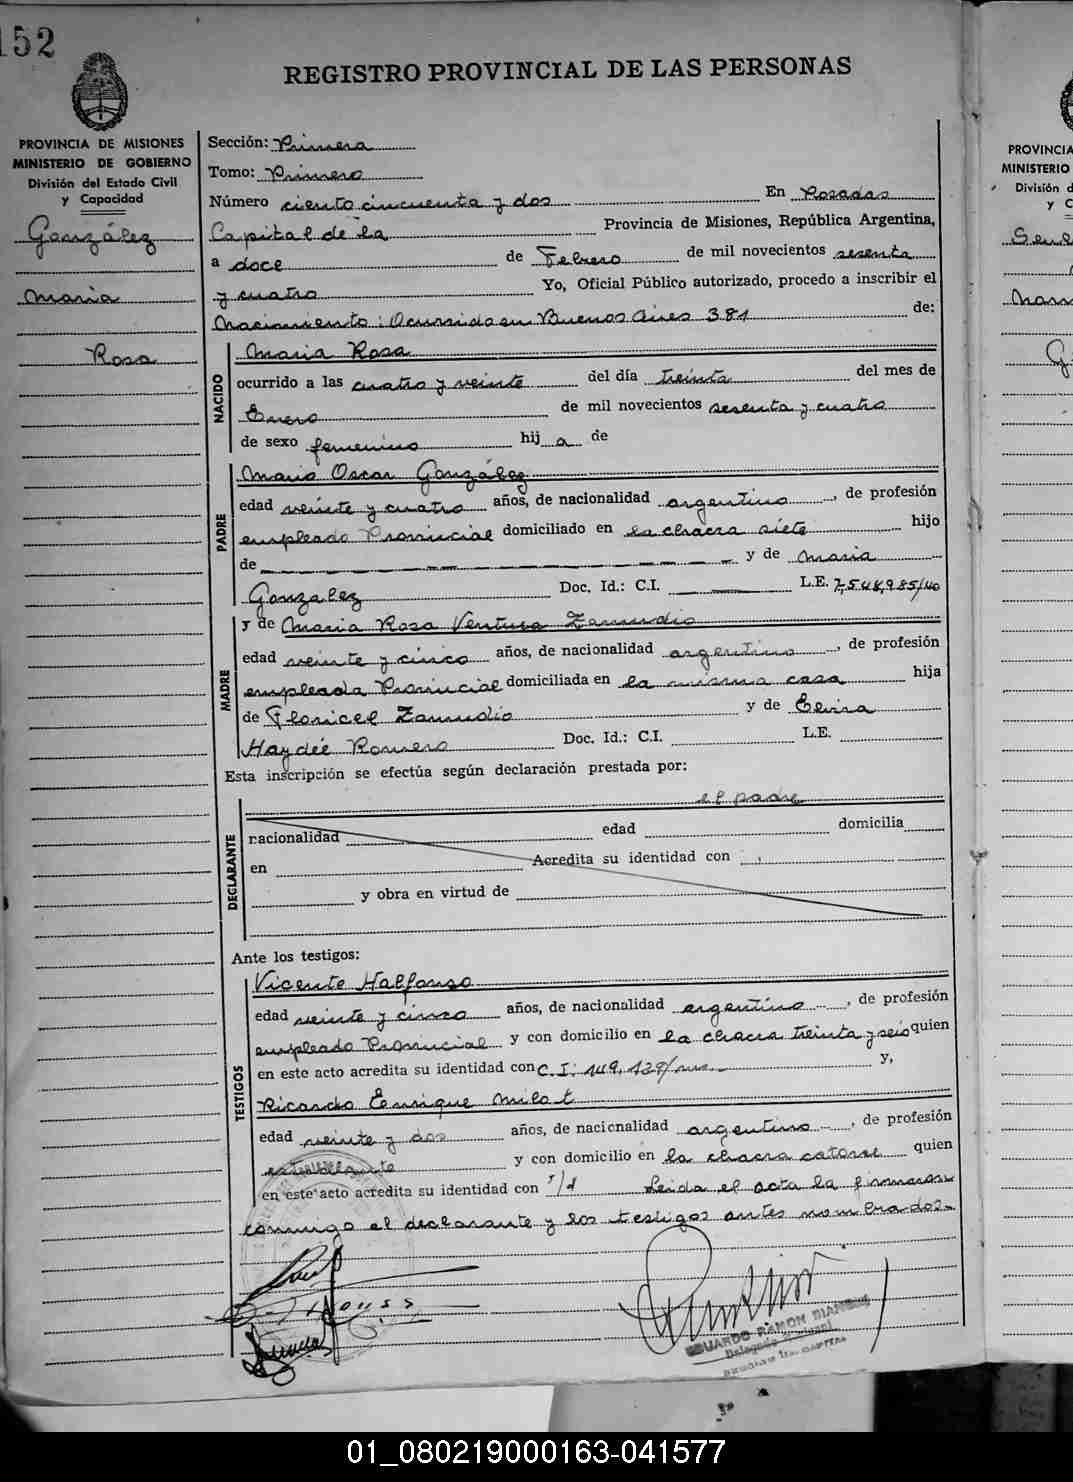 152
REGISTRO PROVINCIAL DE LAS PERSONAS
PROVINCIA DE MISIONES
MINISTERIO DE GOBIERNO
División del Estado Civil
y Capacidad
González
Maria
Rosa
Sección: Primera
Tomo: Primero
Número ciento cincuenta y dos En Posadas
Capital de la Provincia de Misiones, República Argentina,
a doce de Febrero de mil novecientos sesenta
y cuatro Yo, Oficial Público autorizado, procedo a inscribir el
Nacimiento: Ocurrido en Buenos Aires 381 de:
NACIDO
Maria Rosa
ocurrido a las cuatro y veinte del día treinta del mes de
Enero de mil novecientos sesenta y cuatro
de sexo femenino hij a de
PADRE
Mario Oscar González
edad veinte y cuatro años, de nacionalidad argentino, de profesión
empleado Provincial domiciliado en la chacra siete hijo
de y de Maria
Gonzalez Doc. Id.: C.I. L.E. 7,548,985/40
MADRE
y de Maria Rosa Ventura Zamudio
edad veinte y cinco años, de nacionalidad argentina, de profesión
empleada Provincial domiciliada en la misma casa hija
de Floricel Zamudio y de Elvira
Haydée Romero Doc. Id.: C.I. L.E.
Esta inscripción se efectúa según declaración prestada por:
el padre
DECLARANTE
nacionalidad edad domicilia
en Acredita su identidad con
y obra en virtud de
Ante los testigos:
TESTIGOS
Vicente Halfonso
edad veinte y cinco años, de nacionalidad argentino, de profesión
empleado Provincial y con domicilio en la chacra treinta y seis quien
en este acto acredita su identidad con C.I: 149,139/ y,
Ricardo Enrique Milot
edad veinte y dos años, de nacionalidad argentino, de profesión
estudiante y con domicilio en la chacra catorse quien
en este acto acredita su identidad con Leida el acta la firmaron
conmigo el declarante y los testigos antes nombrados.
EDUARDO RAMON
PROVINCIA
MINISTERIO
División d
y C
01_080219000163-041577